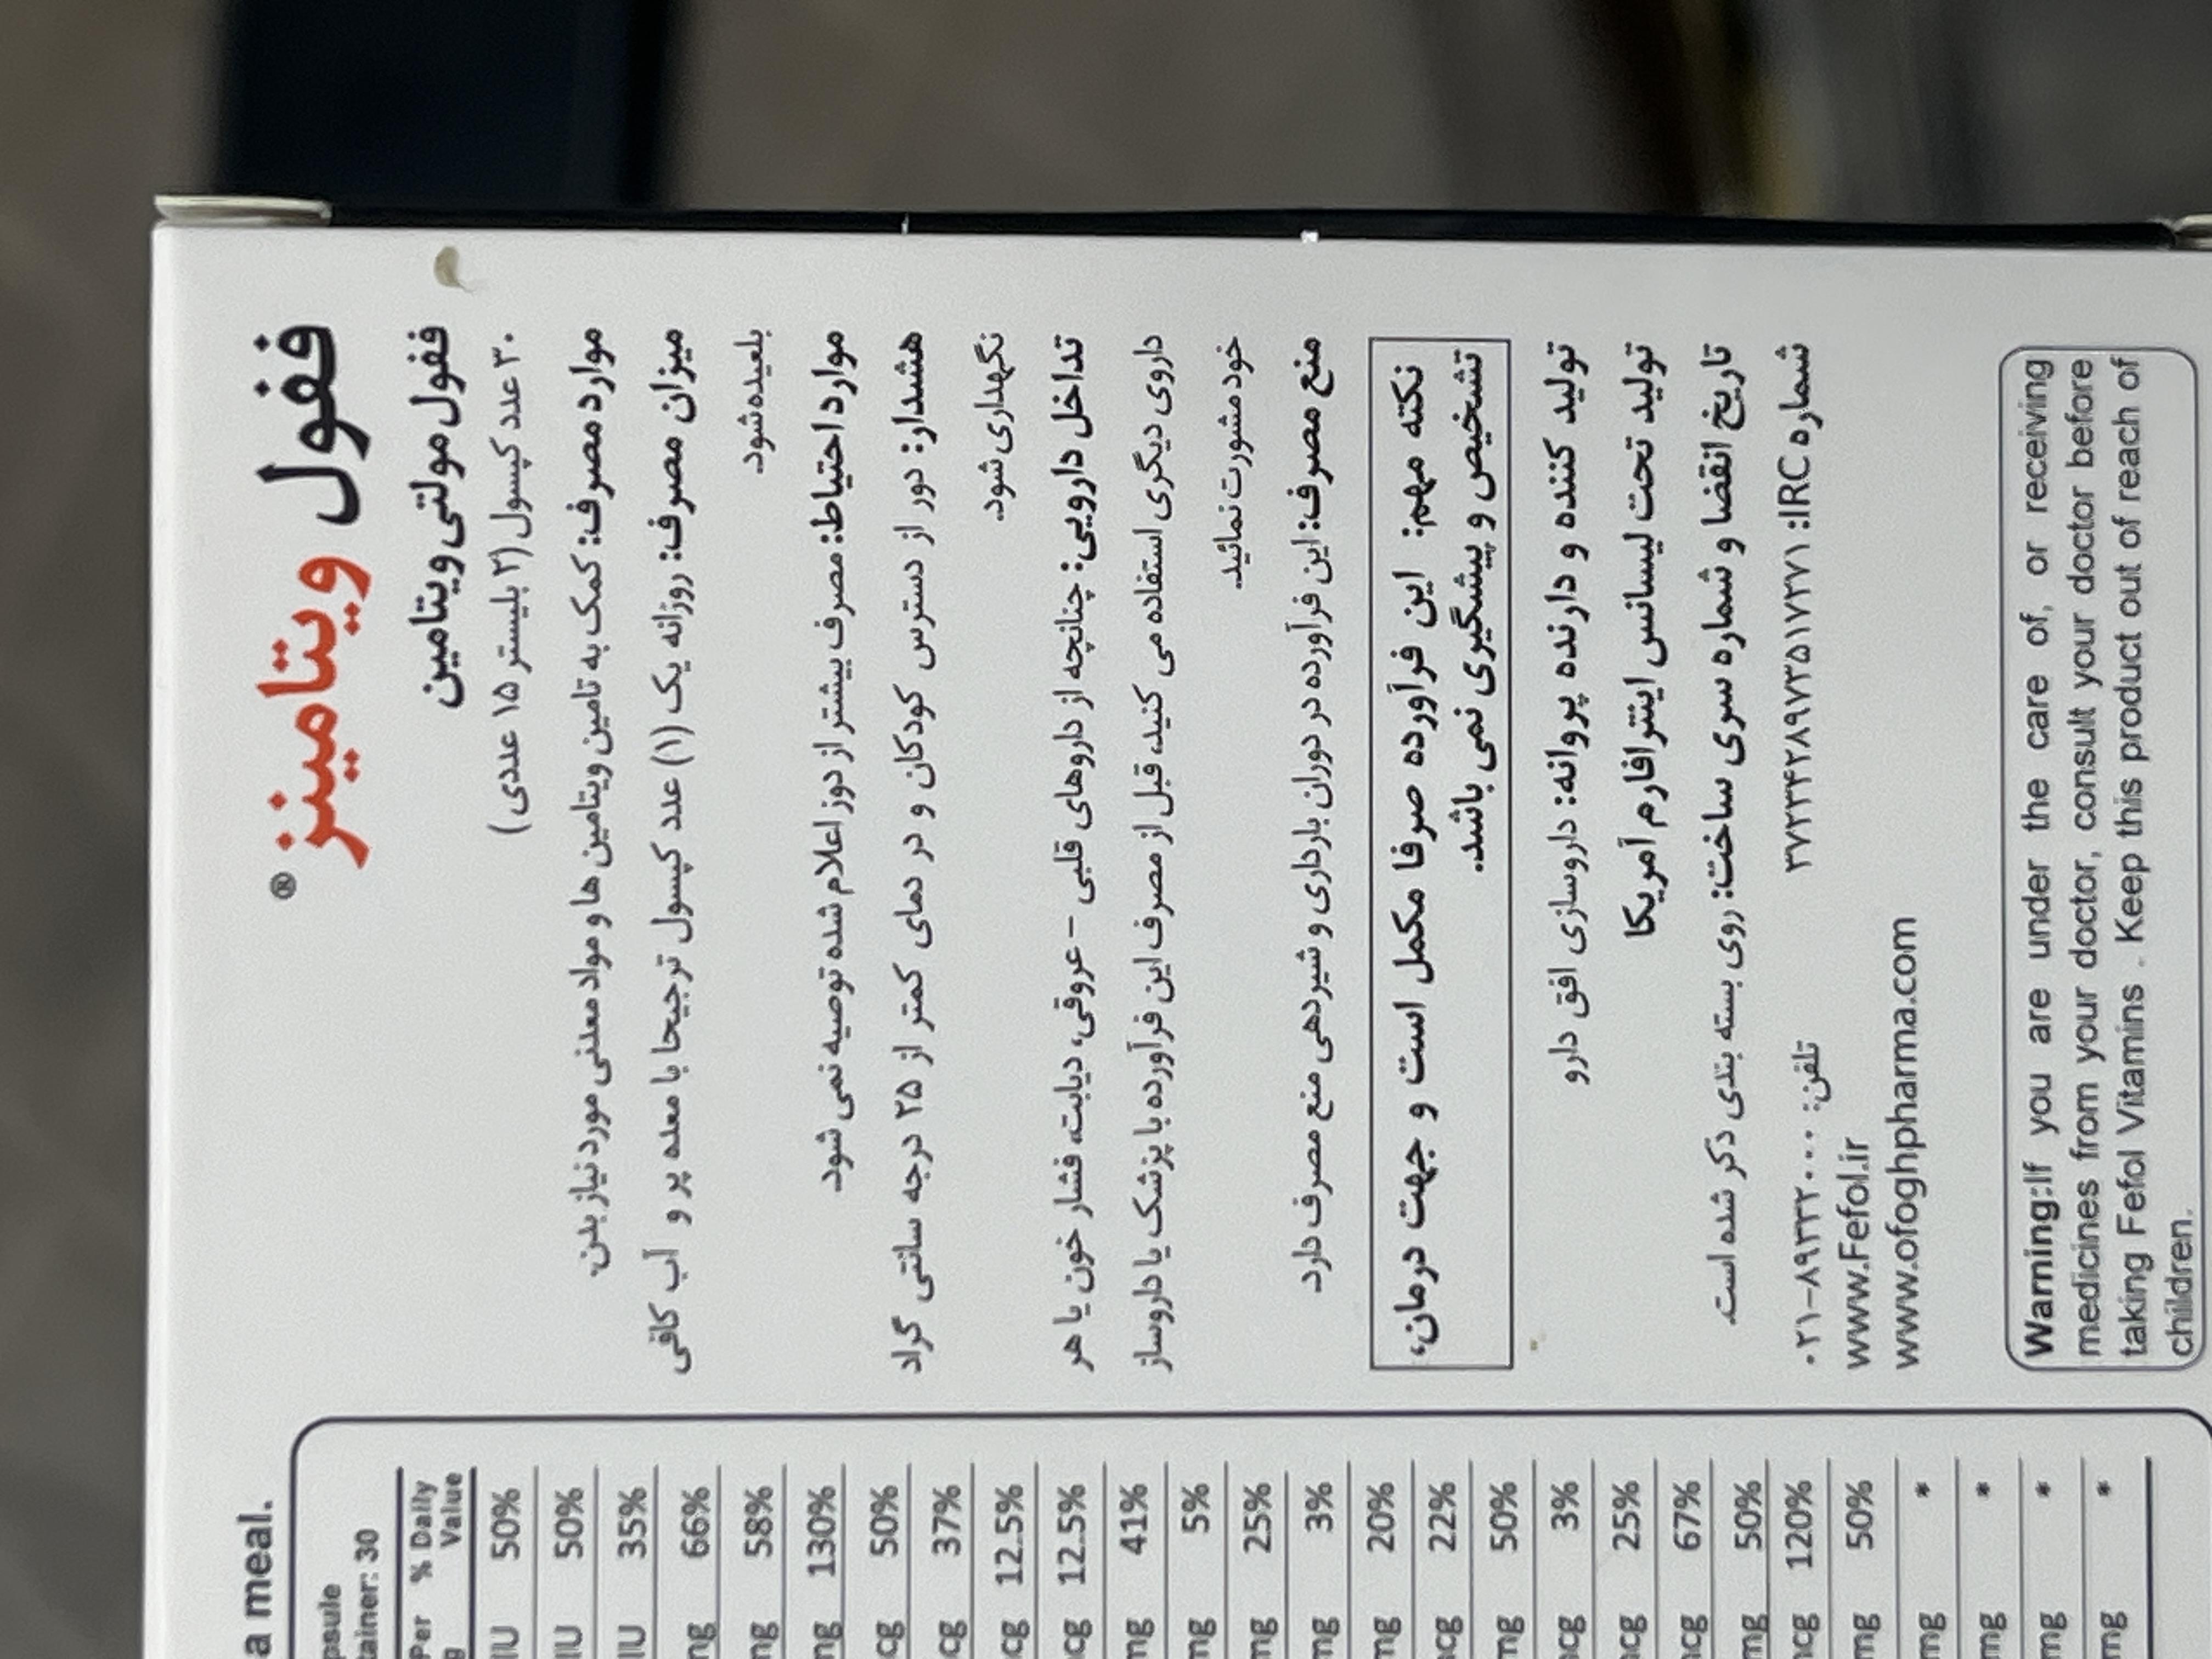 ففول ویتامینز®
ففول مولتی ویتامین
۳۰ عدد کپسول (۲ بلیستر ۱۵ عددی)
موارد مصرف: کمک به تامین ویتامین ها و مواد معدنی مورد نیاز بدن.
میزان مصرف: روزانه یک (۱) عدد کپسول ترجیحا با معده پر و آب کافی
بلعیده شود.
موارد احتیاط: مصرف بیشتر از دوز اعلام شده توصیه نمی شود.
هشدار: دور از دسترس کودکان و در دمای کمتر از ۲۵ درجه سانتی گراد
نگهداری شود.
تداخل دارویی: چنانچه از داروهای قلبی - عروقی، دیابت، فشار خون یا هر
داروی دیگری استفاده می کنید، قبل از مصرف این فرآورده با پزشک یا داروساز
خود مشورت نمائید.
منع مصرف: این فرآورده در دوران بارداری و شیردهی منع مصرف دارد.
نکته مهم: این فرآورده صرفا مکمل است و جهت درمان،
تشخیص و پیشگیری نمی باشد.
تولید کننده و دارنده پروانه: داروسازی افق دارو
تولید تحت لیسانس اینترافارم آمریکا
تاریخ انقضا و شماره سری ساخت: روی بسته بندی ذکر شده است.
شماره IRC: ۲۷۲۳۴۲۸۹۷۳۵۱۷۲۷۱ تلفن: ۰۲۱-۸۹۳۳۲۰۰۰
www.Fefol.ir
www.ofoghpharma.com
Warning:If you are under the care of, or receiving
medicines from your doctor, consult your doctor before
taking Fefol Vitamins . Keep this product out of reach of
children.
a meal.
psule
tainer: 30
Per % Daily
g Value
IU 50%
IU 50%
IU 35%
mg 66%
mg 58%
mg 130%
mcg 50%
mcg 37%
mcg 12.5%
mcg 12.5%
mg 41%
mg 5%
mg 25%
mg 3%
mg 20%
mcg 22%
mg 50%
mcg 3%
mcg 25%
mcg 67%
mg 50%
mcg 120%
mg 50%
mg *
mg *
mg *
mg *